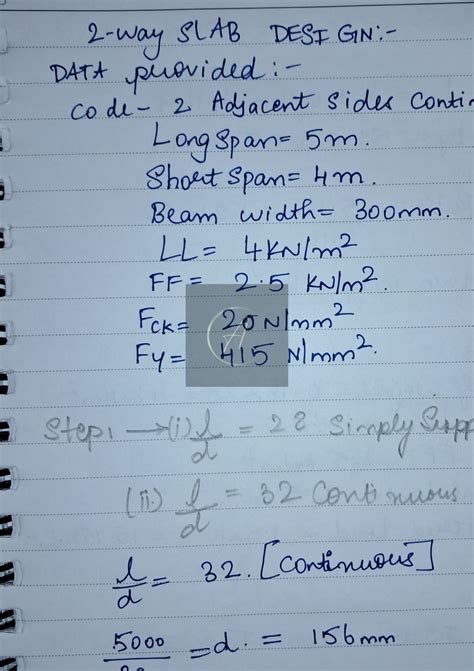 2-way SLAB DESIGN:-
DATA provided:-
Code- 2 Adjacent sides
Long Span= 5m.
Short Span= 4m.
Beam width= 300mm.
LL= 4KN/m²
FF= 2.5 KN/m².
Fck= 20N/mm²
Fy= 415 N/mm².
Step1 →(i) l/d = 28 Simply
(ii) l/d = 32 Continuous
l/d = 32. [Continuous]
5000 =d. = 156mm